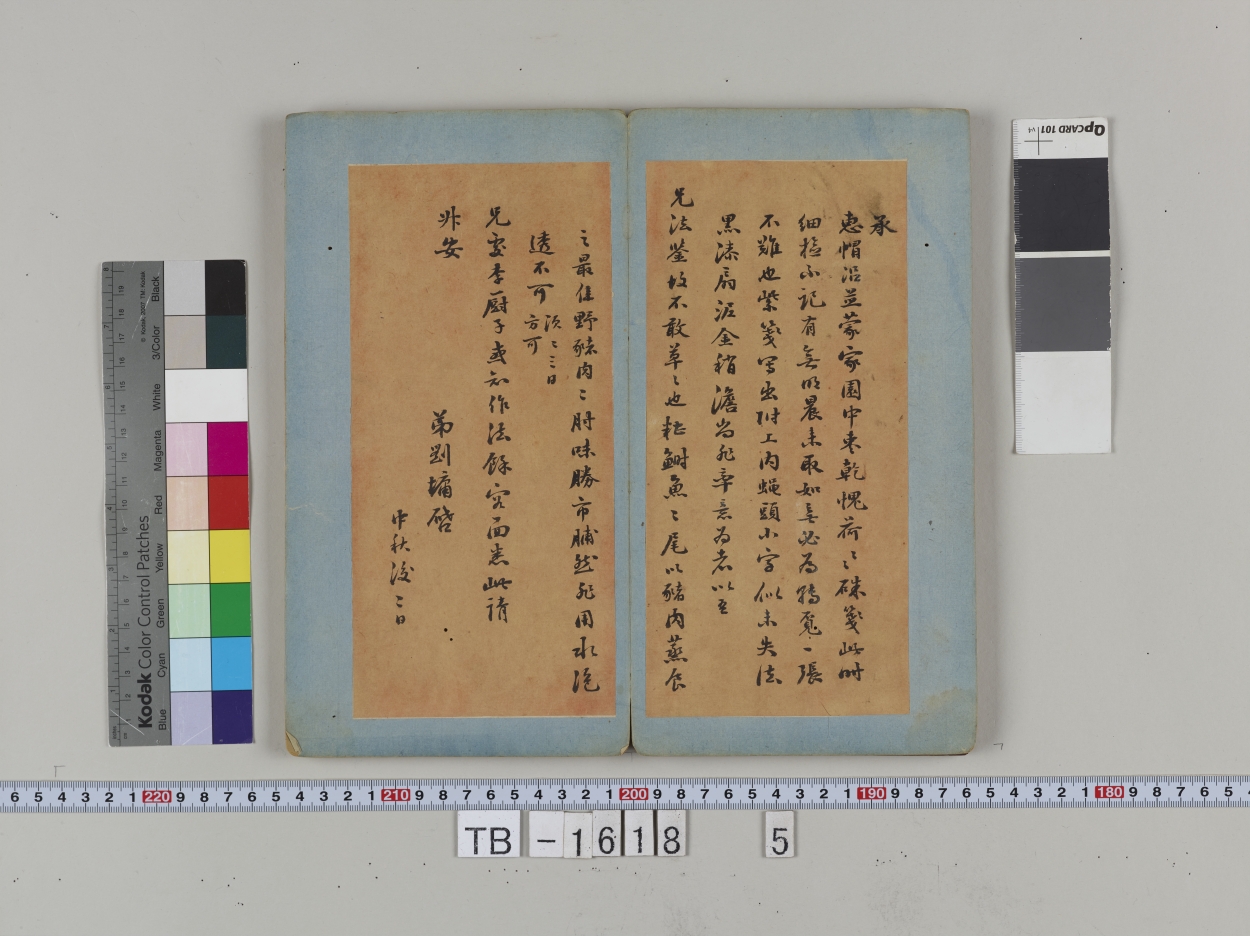 承
惠帽沿並蒙家園中棗乾愧荷〻硃箋此時
細檢不記有無明晨未取如無必為覔一張
不難也紫箋寫出附上內蠅頭小字似未失法
黑漆扇泥金稍澹尚非率意為者以呈
兄法鑒故不敢草〻也糟鰣魚〻尾以豬肉蒸食
之最佳野豬肉〻肘味勝市脯然非用水泡
透不可
須〻三日
方可
兄處李厨子或知作法餘容面悉此請
升安
弟劉墉啓
中秋後二日
Kodak Color Control Patches
Blue Cyan Green Yellow Red Magenta White 3/Color Black
QPCARD 101 v4
6 5 4 3 2 1 220 9 8 7 6 5 4 3 2 1 210 9 8 7 6 5 4 3 2 1 200 9 8 7 6 5 4 3 2 1 190 9 8 7 6 5 4 3 2 1 180 9 8 7 6 5
TB-1618 5